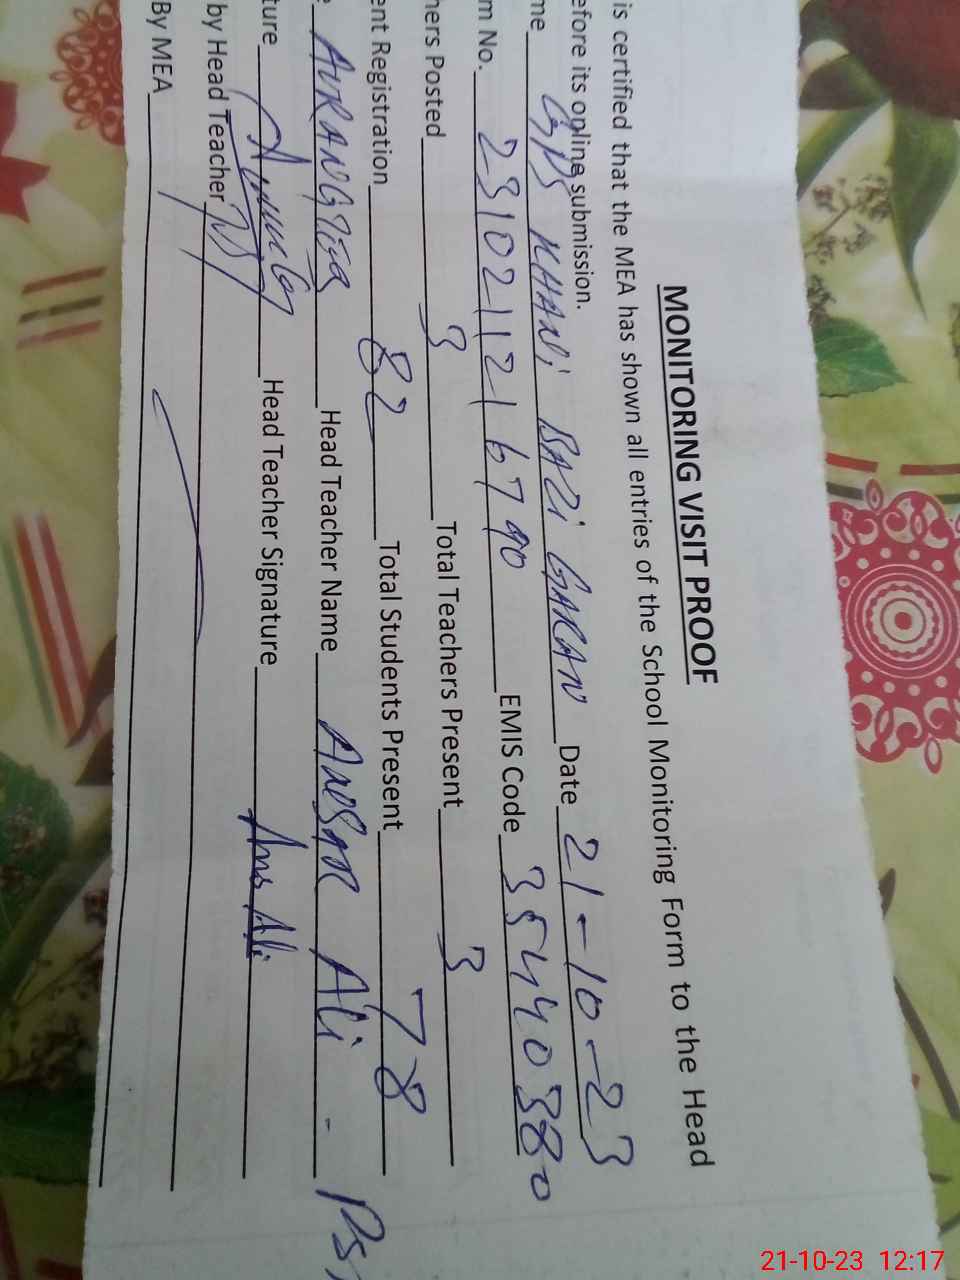 MONITORING VISIT PROOF
is certified that the MEA has shown all entries of the School Monitoring Form to the Head
efore its online submission.
me GPS KHANi BAZi GARAN Date 21-10-23
m No. 2310211216790 EMIS Code 35440380
hers Posted 3 Total Teachers Present 3
ent Registration 82 Total Students Present 78
e Head Teacher Name Ansar Ali - PST
ture Head Teacher Signature
by Head Teacher
By MEA
21-10-23 12:17